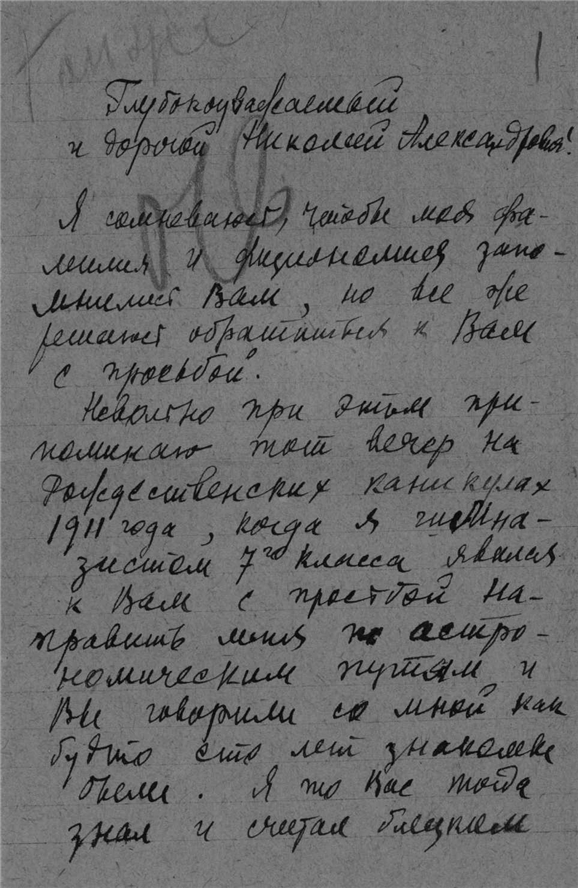 1
Глубокоуважаемый
и дорогой Николай Александрович!
Я сомневаюсь, чтобы моя фа-
милия и физиономия запо-
мнились Вам, но все же
решаюсь обратиться к Вам
с просьбой.
Невольно при этом при-
поминаю тот вечер на
Рождественских каникулах
1911 года, когда я гимна-
зистом 7го класса явился
к Вам с просьбой на-
править меня по астро-
номическим путям и
Вы говорили со мной как
будто сто лет знакомы
были. Я то Вас тогда
знал и считал близким